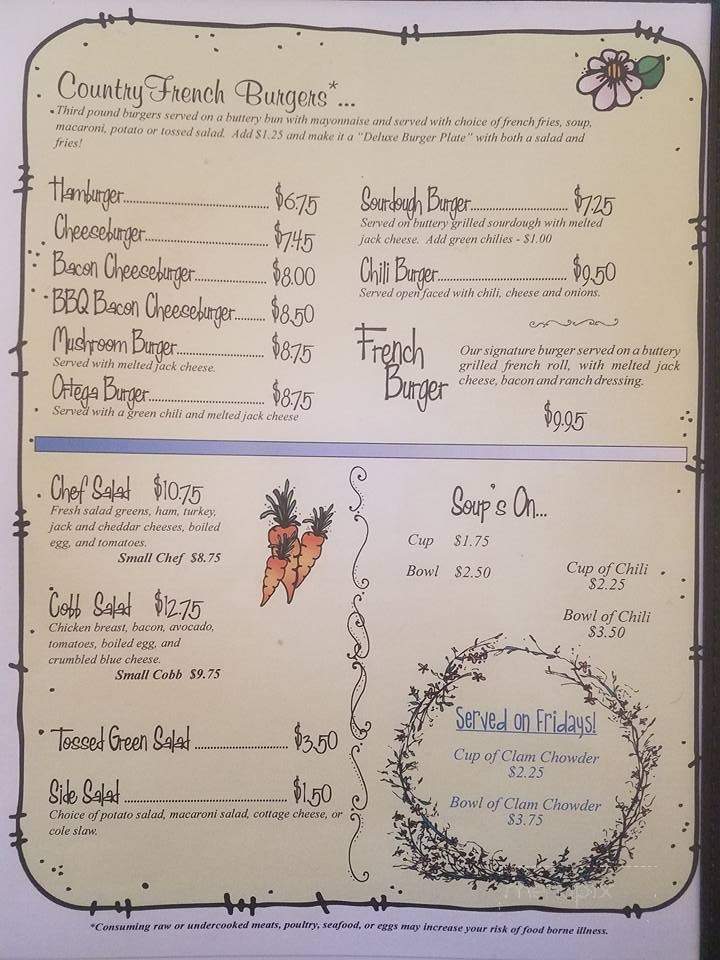 Country French Burgers*...
Third pound burgers served on a buttery bun with mayonnaise and served with choice of french fries, soup,
macaroni, potato or tossed salad. Add $1.25 and make it a "Deluxe Burger Plate" with both a salad and
fries!
Hamburger................................ $6.75
Cheeseburger........................... $7.45
Bacon Cheeseburger................ $8.00
BBQ Bacon Cheeseburger....... $8.50
Mushroom Burger.................... $8.75
Served with melted jack cheese.
Ortega Burger.......................... $8.75
Served with a green chili and melted jack cheese
Sourdough Burger...................... $7.25
Served on buttery grilled sourdough with melted
jack cheese. Add green chilies - $1.00
Chili Burger............................. $9.50
Served open faced with chili, cheese and onions.
French
Burger
Our signature burger served on a buttery
grilled french roll, with melted jack
cheese, bacon and ranch dressing.
$9.95
Chef Salad $10.75
Fresh salad greens, ham, turkey,
jack and cheddar cheeses, boiled
egg, and tomatoes.
Small Chef $8.75
Cobb Salad $12.75
Chicken breast, bacon, avocado,
tomatoes, boiled egg, and
crumbled blue cheese.
Small Cobb $9.75
Tossed Green Salad ..................... $3.50
Side Salad .................................... $1.50
Choice of potato salad, macaroni salad, cottage cheese, or
cole slaw.
Soup's On...
Cup $1.75
Bowl $2.50
Cup of Chili
$2.25
Bowl of Chili
$3.50
Served on Fridays!
Cup of Clam Chowder
$2.25
Bowl of Clam Chowder
$3.75
*Consuming raw or undercooked meats, poultry, seafood, or eggs may increase your risk of food borne illness.